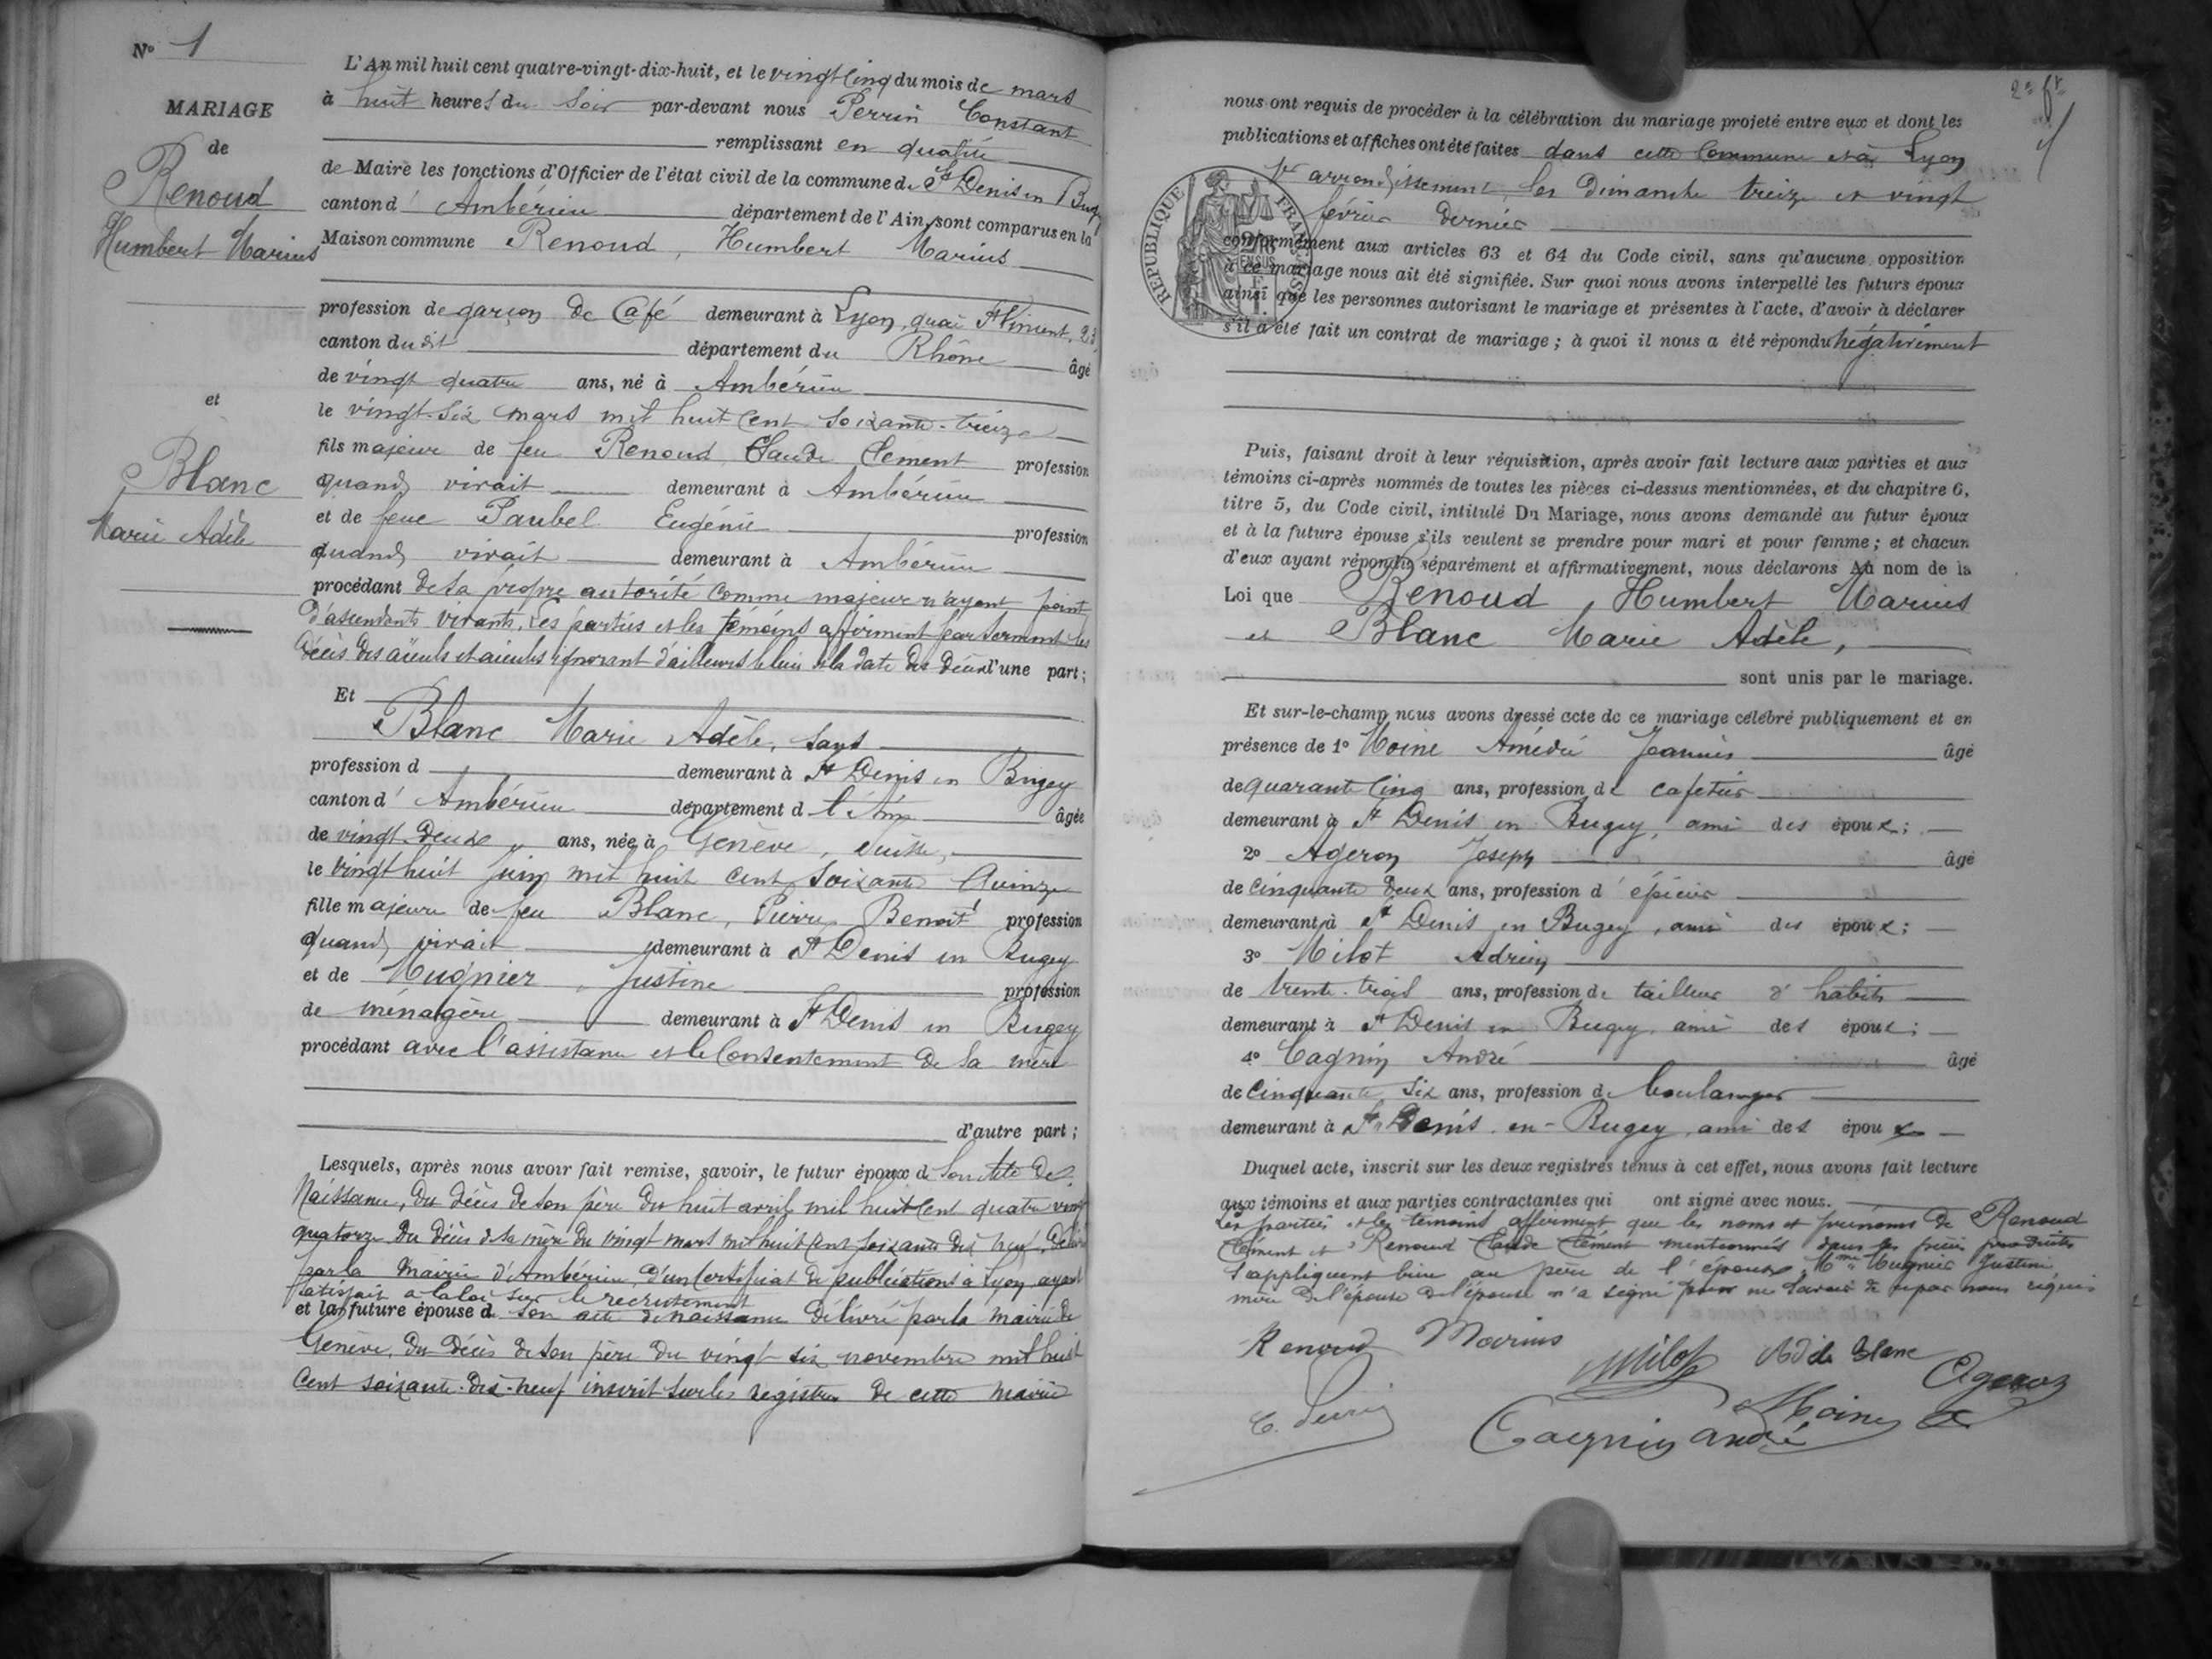 N° 1
MARIAGE
de
Renoud
Humbert Marius
et
Blanc
Marie Adèle
L'An mil huit cent quatre-vingt-dix-huit, et le vingt cinq du mois de mars
à huit heures du soir par-devant nous Perrin Constant
remplissant en qualité
de Maire les fonctions d'Officier de l'état civil de la commune de St Denis en Bug
canton d' Ambérieu département de l'Ain, sont comparus en la
Maison commune Renoud, Humbert Marius
profession de garçon de Café demeurant à Lyon, quai St Vincent, 23
canton du dit département du Rhône âgé
de vingt quatre ans, né à Ambérieu
le vingt-six mars mil huit cent soixante-treize
fils majeur de feu Renoud Claude Clément profession
quand vivait demeurant à Ambérieu
et de feue Paubel Eugénie profession
quand vivait demeurant à Ambérieu
procédant de sa propre autorité comme majeur n'ayant point
d'ascendants vivants. Les parties et les témoins affirment par serment les
décès des aïeuls et aïeules ignorant d'ailleurs le lieu et la date des décès d'une part;
Et
Blanc Marie Adèle, sans
profession d demeurant à St Denis en Bugey
canton d' Ambérieu département d l'Ain âgée
de vingt-deux ans, née à Genève, Suisse,
le vingt huit juin mil huit cent soixante Quinze
fille majeure de feu Blanc, Pierre, Benoit profession
quand vivait demeurant à St Denis en Bugey
et de Mugnier, Justine profession
de ménagère demeurant à St Denis en Bugey
procédant avec l'assistance et le Consentement de sa mère
d'autre part;
Lesquels, après nous avoir fait remise, savoir, le futur époux de son acte de
Naissance, du décès de son père du huit avril mil huit cent quatre vingt
quatorze du décès de sa mère du vingt mars mil huit cent soixante dix neuf, délivrés
par la Mairie d'Ambérieu, d'un certificat de publications à Lyon, ayant
satisfait a la loi sur le recrutement
et la future épouse d son acte de naissance délivré par la mairie de
Genève, du décès de son père du vingt six novembre mil huit
cent soixante-dix-neuf inscrit sur les registres de cette mairie
2e ft
nous ont requis de procéder à la célébration du mariage projeté entre eux et dont les
publications et affiches ont été faites dans cette Commune et à Lyon
1er arrondissement, les Dimanche treize et vingt
février dernier
RÉPUBLIQUE FRANÇAISE
conformément aux articles 63 et 64 du Code civil, sans qu'aucune opposition
à ce mariage nous ait été signifiée. Sur quoi nous avons interpellé les futurs époux
ainsi que les personnes autorisant le mariage et présentes à l'acte, d'avoir à déclarer
s'il a été fait un contrat de mariage; à quoi il nous a été répondu négativement
Puis, faisant droit à leur réquisition, après avoir fait lecture aux parties et aux
témoins ci-après nommés de toutes les pièces ci-dessus mentionnées, et du chapitre 6,
titre 5, du Code civil, intitulé Du Mariage, nous avons demandé au futur époux
et à la future épouse s'ils veulent se prendre pour mari et pour femme; et chacun
d'eux ayant répondu séparément et affirmativement, nous déclarons Au nom de la
Loi que Renoud, Humbert Marius
et Blanc Marie Adèle,
sont unis par le mariage.
Et sur-le-champ nous avons dressé acte de ce mariage célébré publiquement et en
présence de 1° Moine Amédée Jeannin âgé
de quarante cinq ans, profession de cafetier
demeurant à St Denis en Bugey, ami des époux;
2° Ageron Joseph âgé
de cinquante deux ans, profession d'épicier
demeurant à St Denis en Bugey, ami des époux;
3° Milot Adrien
de trente-trois ans, profession de tailleur d'habits
demeurant à St Denis en Bugey, ami des époux;
4° Cagnin André âgé
de cinquante six ans, profession de boulanger
demeurant à St Denis-en-Bugey, ami des époux
Duquel acte, inscrit sur les deux registres tenus à cet effet, nous avons fait lecture
aux témoins et aux parties contractantes qui ont signé avec nous.
Les parties et les témoins affirment que les noms et prénoms de Renoud
Clément et Renoud Claude Clément mentionnés dans les pièces produites
s'appliquent bien au père de l'époux. Mme Mugnier Justine
mère de l'épouse de l'épouse n'a signé pour ne savoir de ce par nous requis
Renoud Marius Milot Adèle Blanc Ageron
C. Perrin Cagnin André Moine